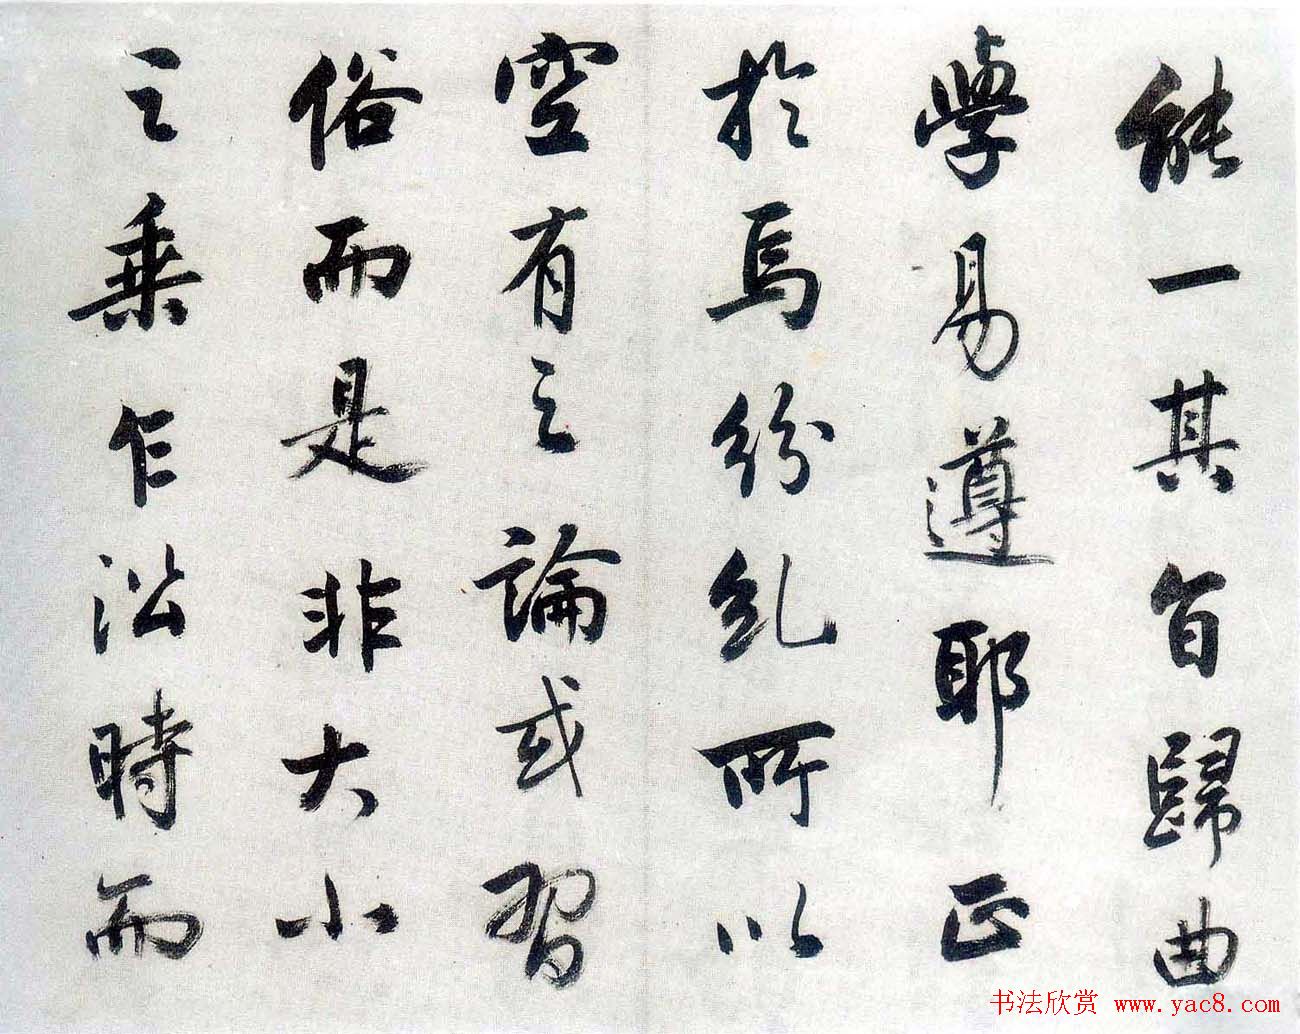 能一其旨歸曲
學易遵耶正
於焉紛糺所以
空有之論或習
俗而是非大小
之乘乍沿時而
书法欣赏 www.yac8.com